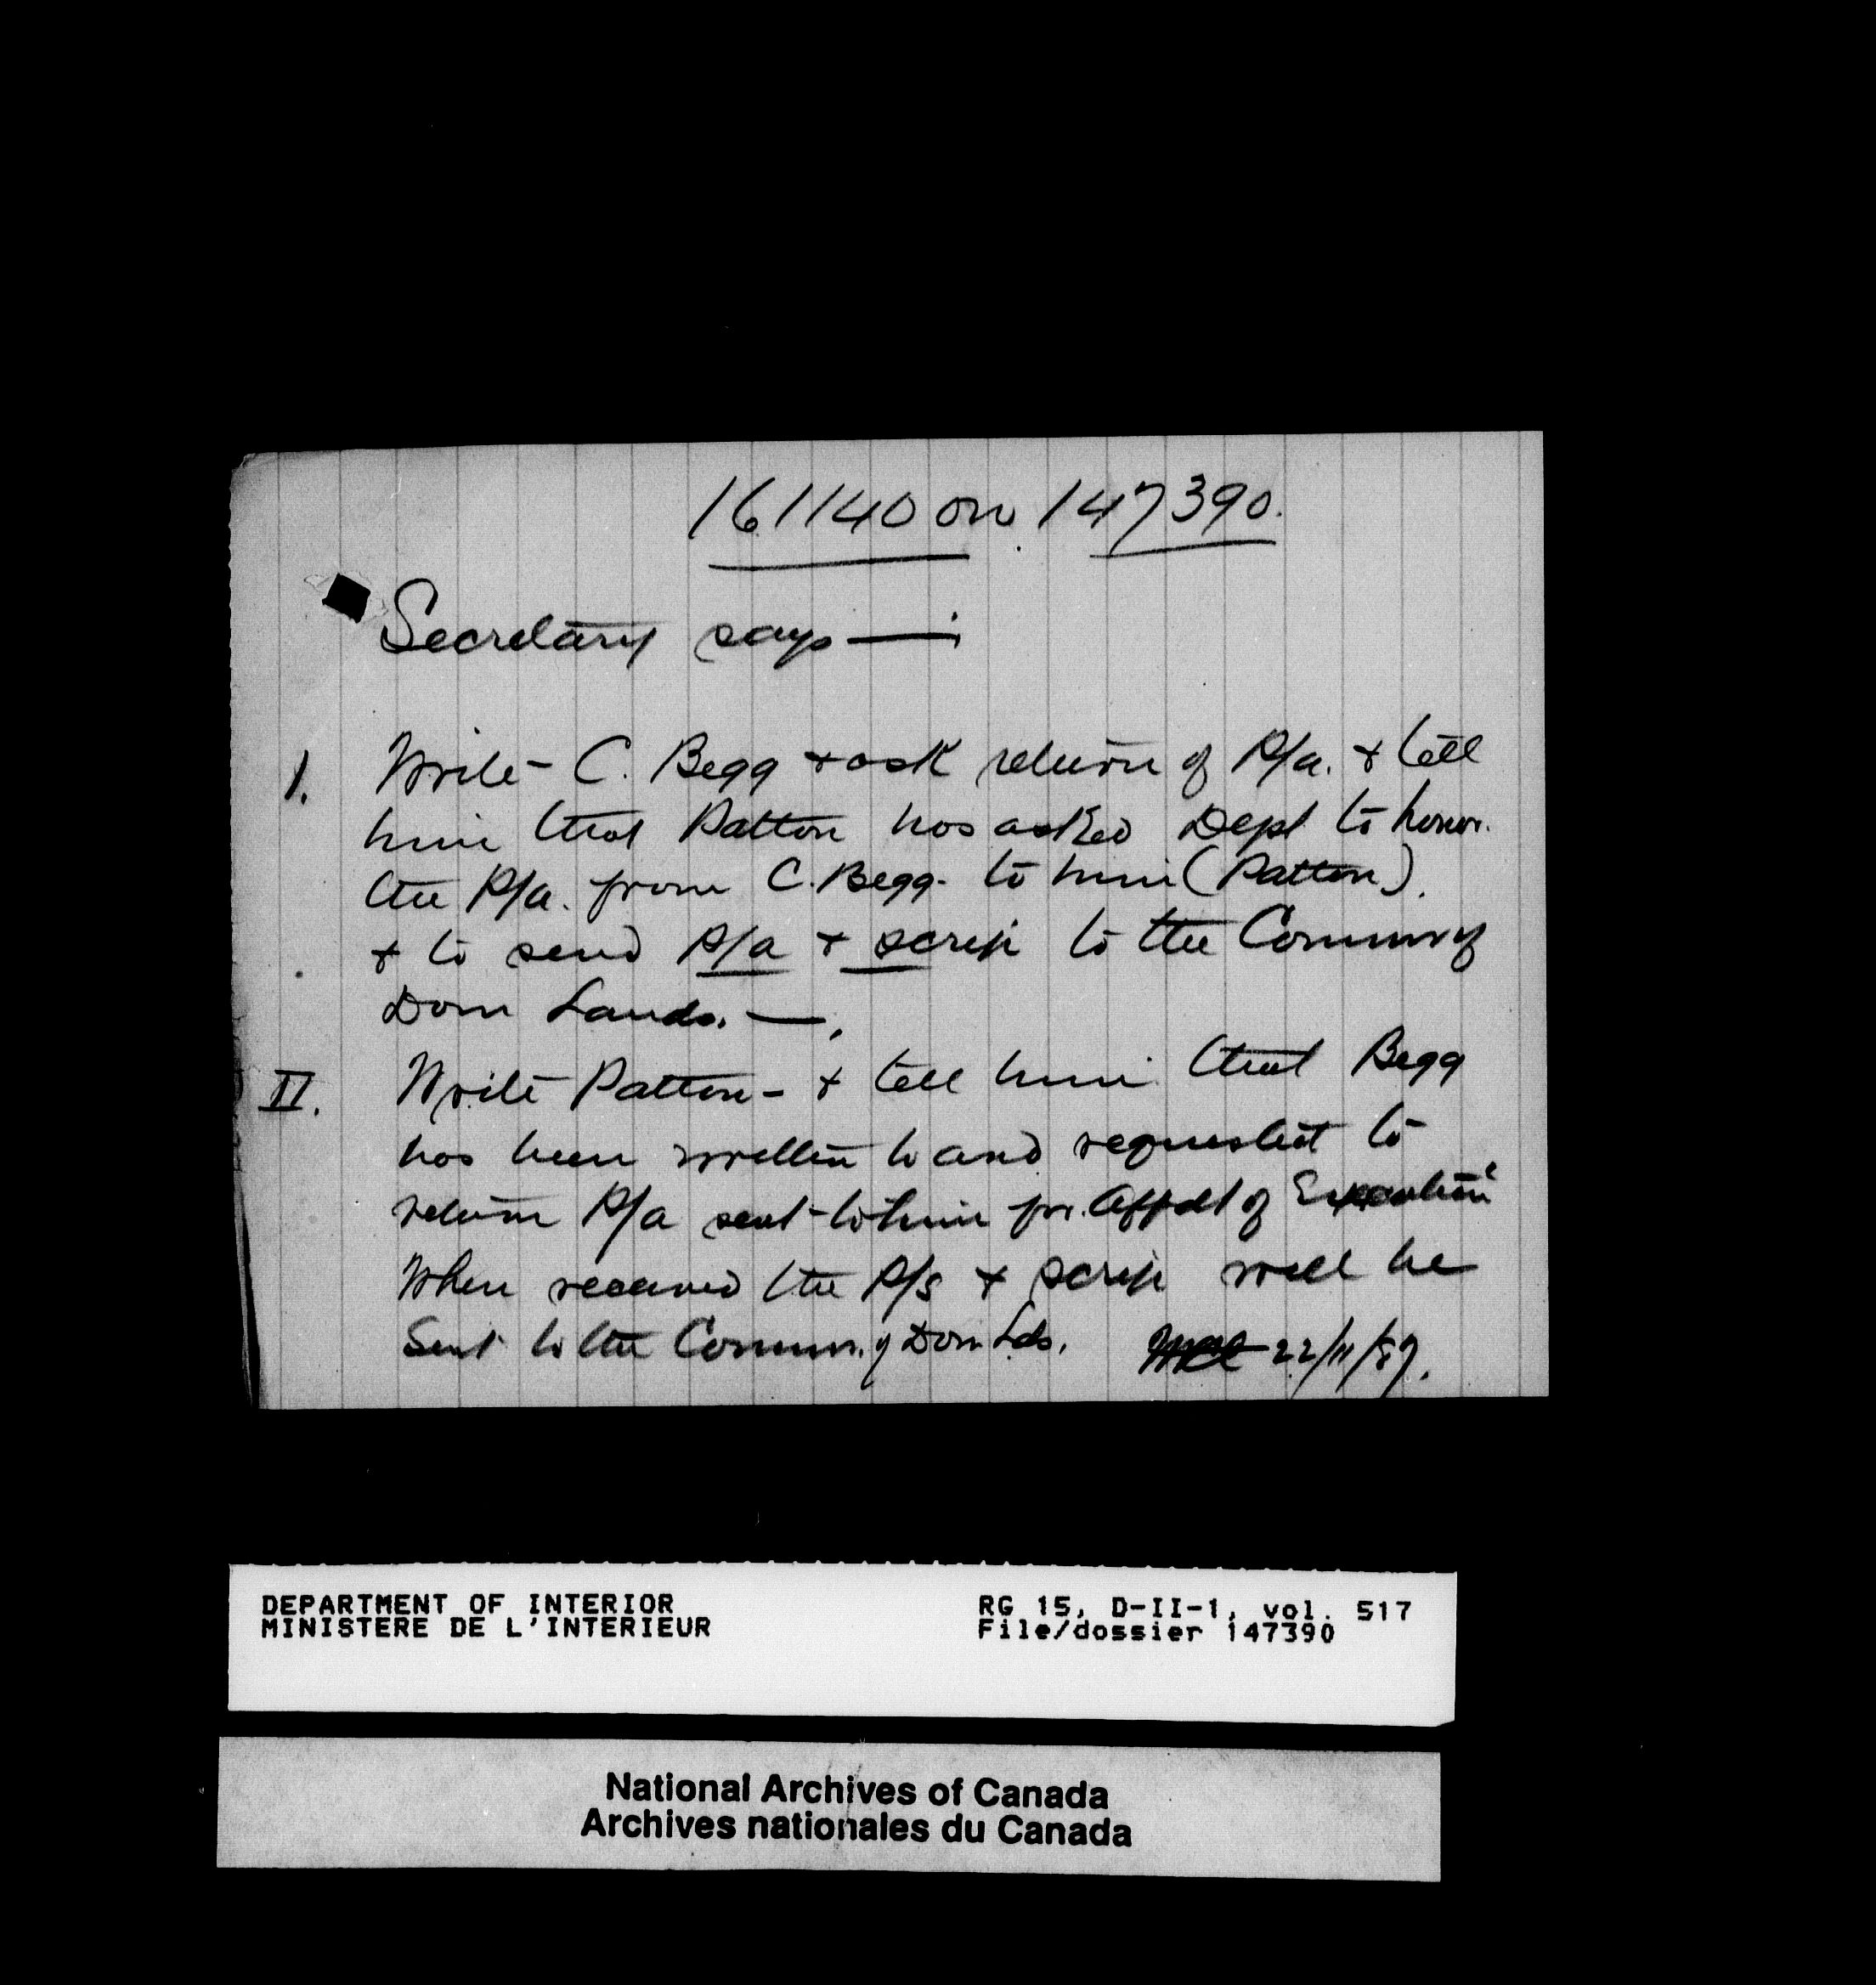 161140 on 147390.
Secretary says —
1. Write C. Begg + ask return of P/a. + tell
him that Patton has asked Dept to honor.
the P/a. from C. Begg. to him (Patton).
+ to send P/a + scrip to the Commr of
Dom Lands. —.
II. Write Patton - + tell him that Begg
has been written to and requested to
return P/a sent to him for Affdt of Execution
When received the P/s + scrip will be
Sent to the Commr. of Dom Lds. 22/11/87.
DEPARTMENT OF INTERIOR RG 15, D-II-1, vol. 517
MINISTERE DE L'INTERIEUR File/dossier 147390
National Archives of Canada
Archives nationales du Canada